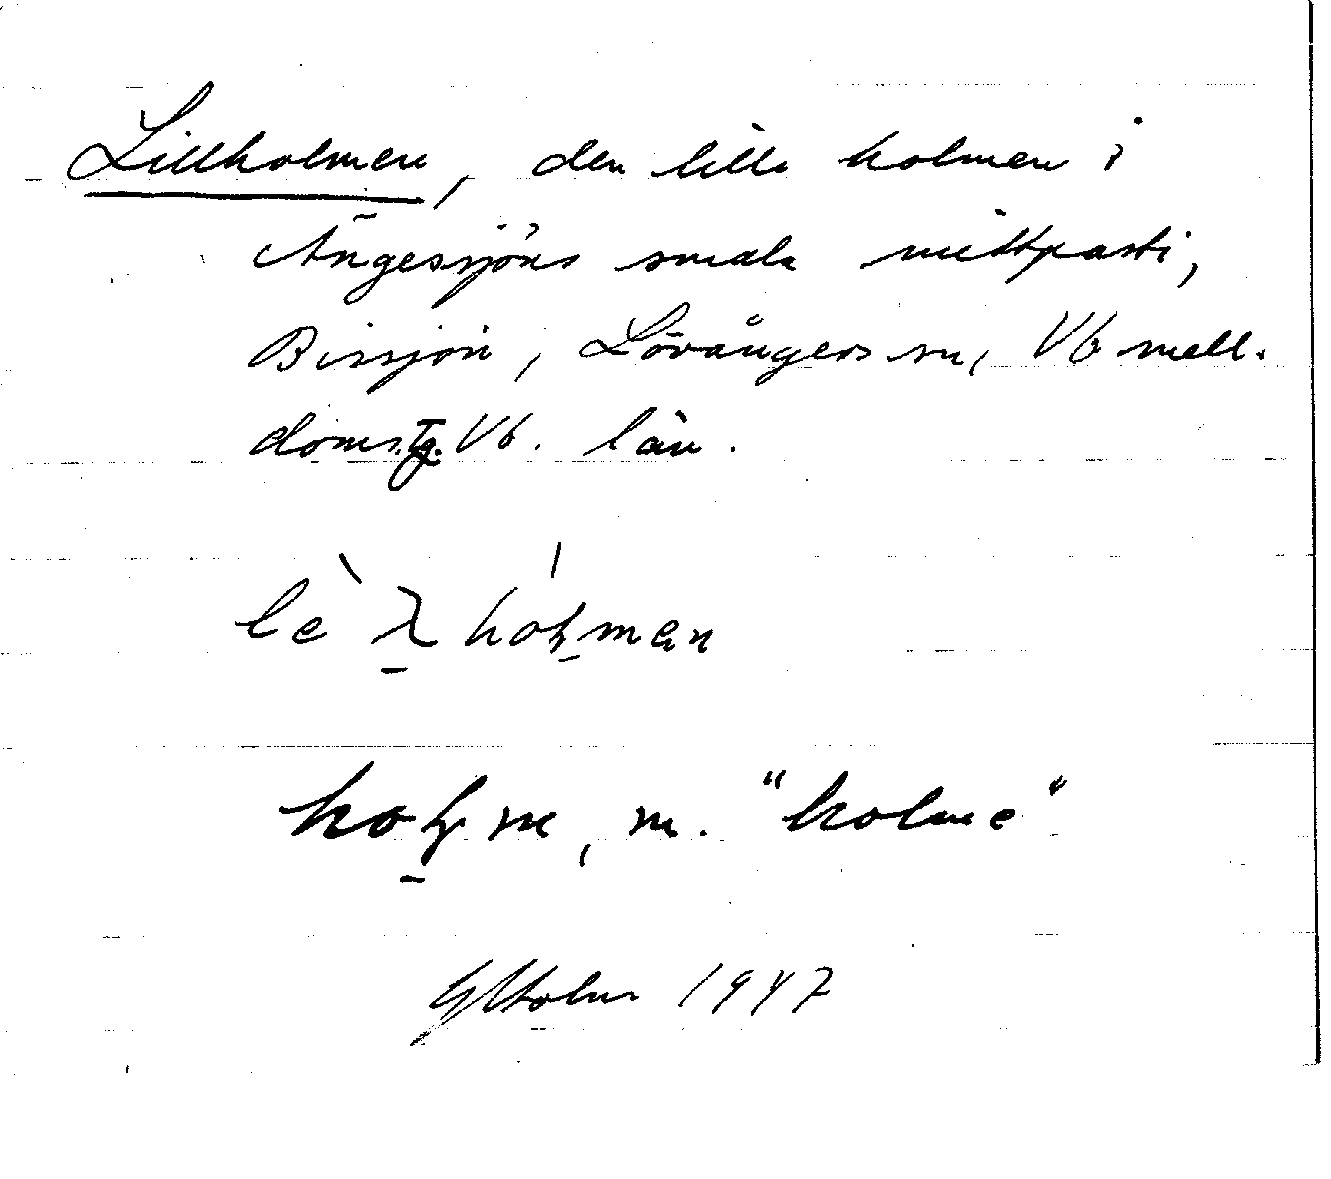 Lillholmen, den lille holmen i
Ängessjöns smala mittparti,
Bissjön, Lövångers sn, Vb mell.
doms.tg. Vb. län.
"holme"
1947